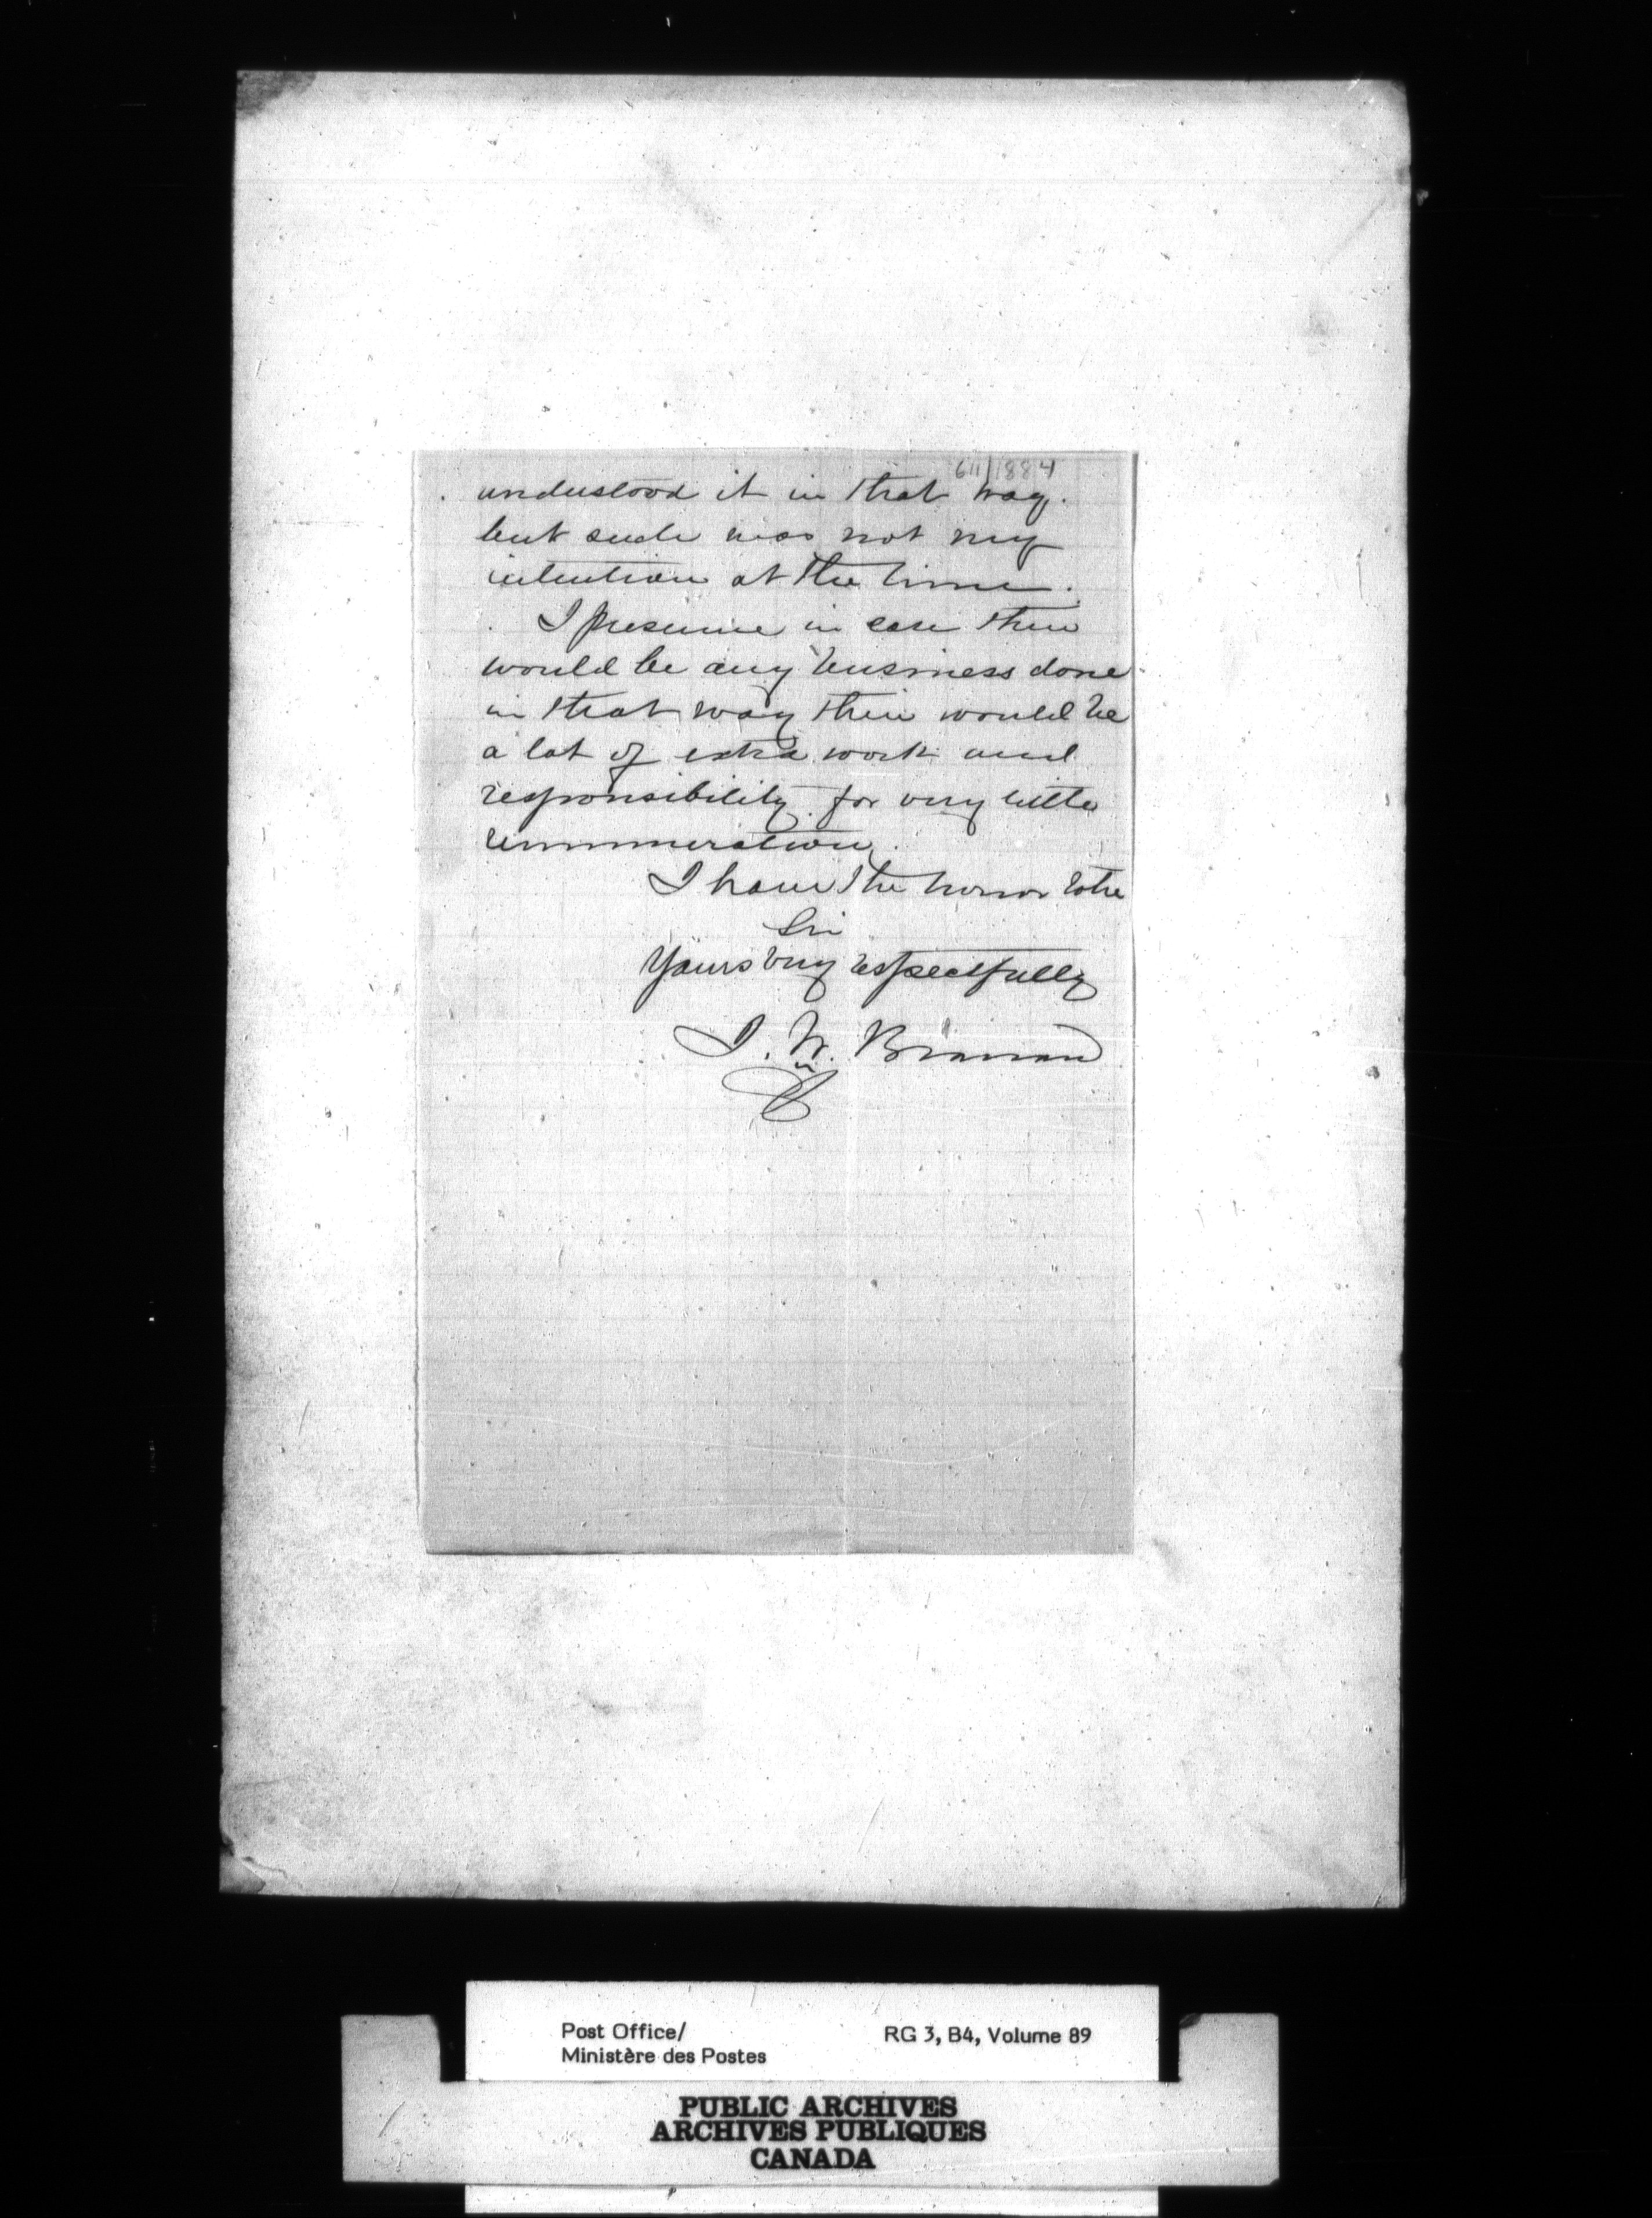 611/1884
understood it in that way.
but such was not my
intention at the time.
I presume in case there
would be any business done
in that way there would be
a lot of extra work and
responsibility for very little
remmuneration.
I have the honor to be
Sir
Yours very respectfully
J. W.
Post Office/
Ministère des Postes
RG 3, B4, Volume 89
PUBLIC ARCHIVES
ARCHIVES PUBLIQUES
CANADA